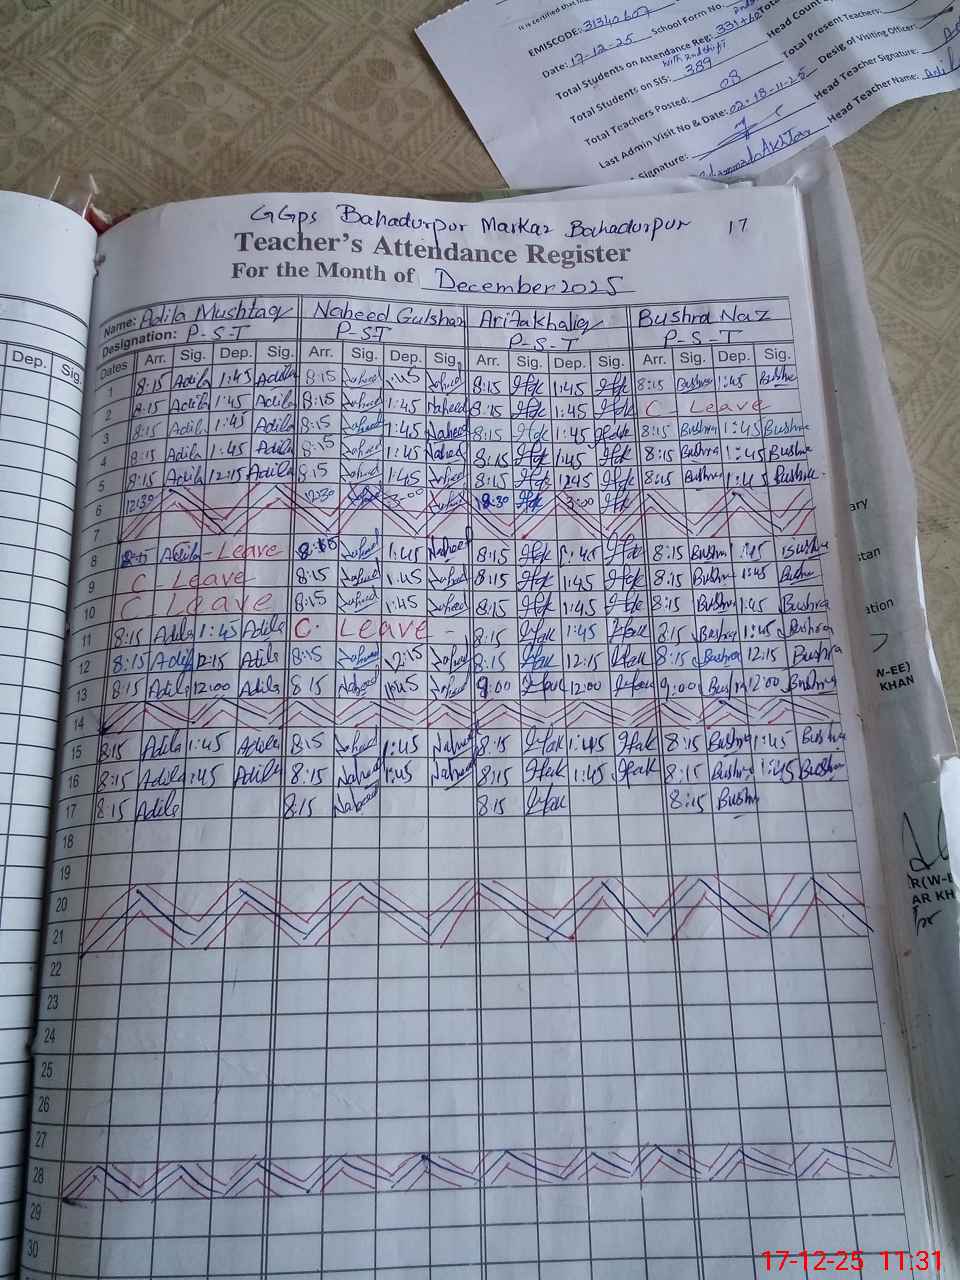 It is certified that
EMISCODE: 31340607
Date: 17-12-25 School Form No.
Total Students on Attendance Reg: 331+60
With 2nd shift
Total Students on SIS: 389
Total Teachers Posted: 08
Last Admin Visit No & Date: 02-18-11-25
Signature:
Head Count
Total Present Teachers:
Desig of Visiting Officer:
Head Teacher Signature:
Head Teacher Name:
GGps Bahadurpur Markaz Bahadurpur 17
Teacher's Attendance Register
For the Month of December 2025
Name: Adila Mushtaq Naheed Gulshan Arifa khaliq Bushra Naz
Designation: P-S-T P-S-T P-S-T P-S-T
Dates Arr. Sig. Dep. Sig. Arr. Sig. Dep. Sig. Arr. Sig. Dep. Sig. Arr. Sig. Dep. Sig.
1 8:15 Adila 1:45 Adila 8:15 Naheed 1:45 Naheed 8:15 1:45 8:15 Bushra 1:45 Bushra
2 8:15 Adila 1:45 Adila 8:15 Naheed 1:45 Naheed 8:15 1:45 C - Leave
3 8:15 Adila 1:45 Adila 8:15 Naheed 1:45 Naheed 8:15 1:45 8:15 Bushra 1:45 Bushra
4 8:15 Adila 1:45 Adila 8:15 Naheed 1:45 Naheed 8:15 1:45 8:15 Bushra 1:45 Bushra
5 8:15 Adila 12:15 Adila 8:15 Naheed 1:45 Naheed 8:15 1245 8:15 Bushra 1:45 Bushra
6 12:30 12:30 3:00 12:30 3:00
7
8 Adila - Leave 8:15 Naheed 1:45 Naheed 8:15 1:45 8:15 Bushra 1:45 Bushra
9 C - Leave 8:15 Naheed 1:45 Naheed 8:15 1:45 8:15 Bushra 1:45 Bushra
10 C Leave 8:15 Naheed 1:45 Naheed 8:15 1:45 8:15 Bushra 1:45 Bushra
11 8:15 Adila 1:45 Adila C. Leave - 8:15 1:45 8:15 Bushra 1:45 Bushra
12 8:15 Adila 12:15 Adila 8:15 Naheed 12:15 Naheed 8:15 12:15 8:15 Bushra 12:15 Bushra
13 8:15 Adila 12:00 Adila 8:15 Naheed 1:45 Naheed 9:00 12:00 9:00 Bushra 12:00 Bushra
14
15 8:15 Adila 1:45 Adila 8:15 Naheed 1:45 Naheed 8:15 1:45 8:15 Bushra 1:45 Bushra
16 8:15 Adila 1:45 Adila 8:15 Naheed 1:45 Naheed 8:15 1:45 8:15 Bushra 1:45 Bushra
17 8:15 Adila 8:15 Naheed 8:15 8:15 Bushra
18
19
20
21
22
23
24
25
26
27
28
29
30
Dep. Sig.
(W-EE)
KHAN
R(W-E
AR KH
17-12-25 11:31